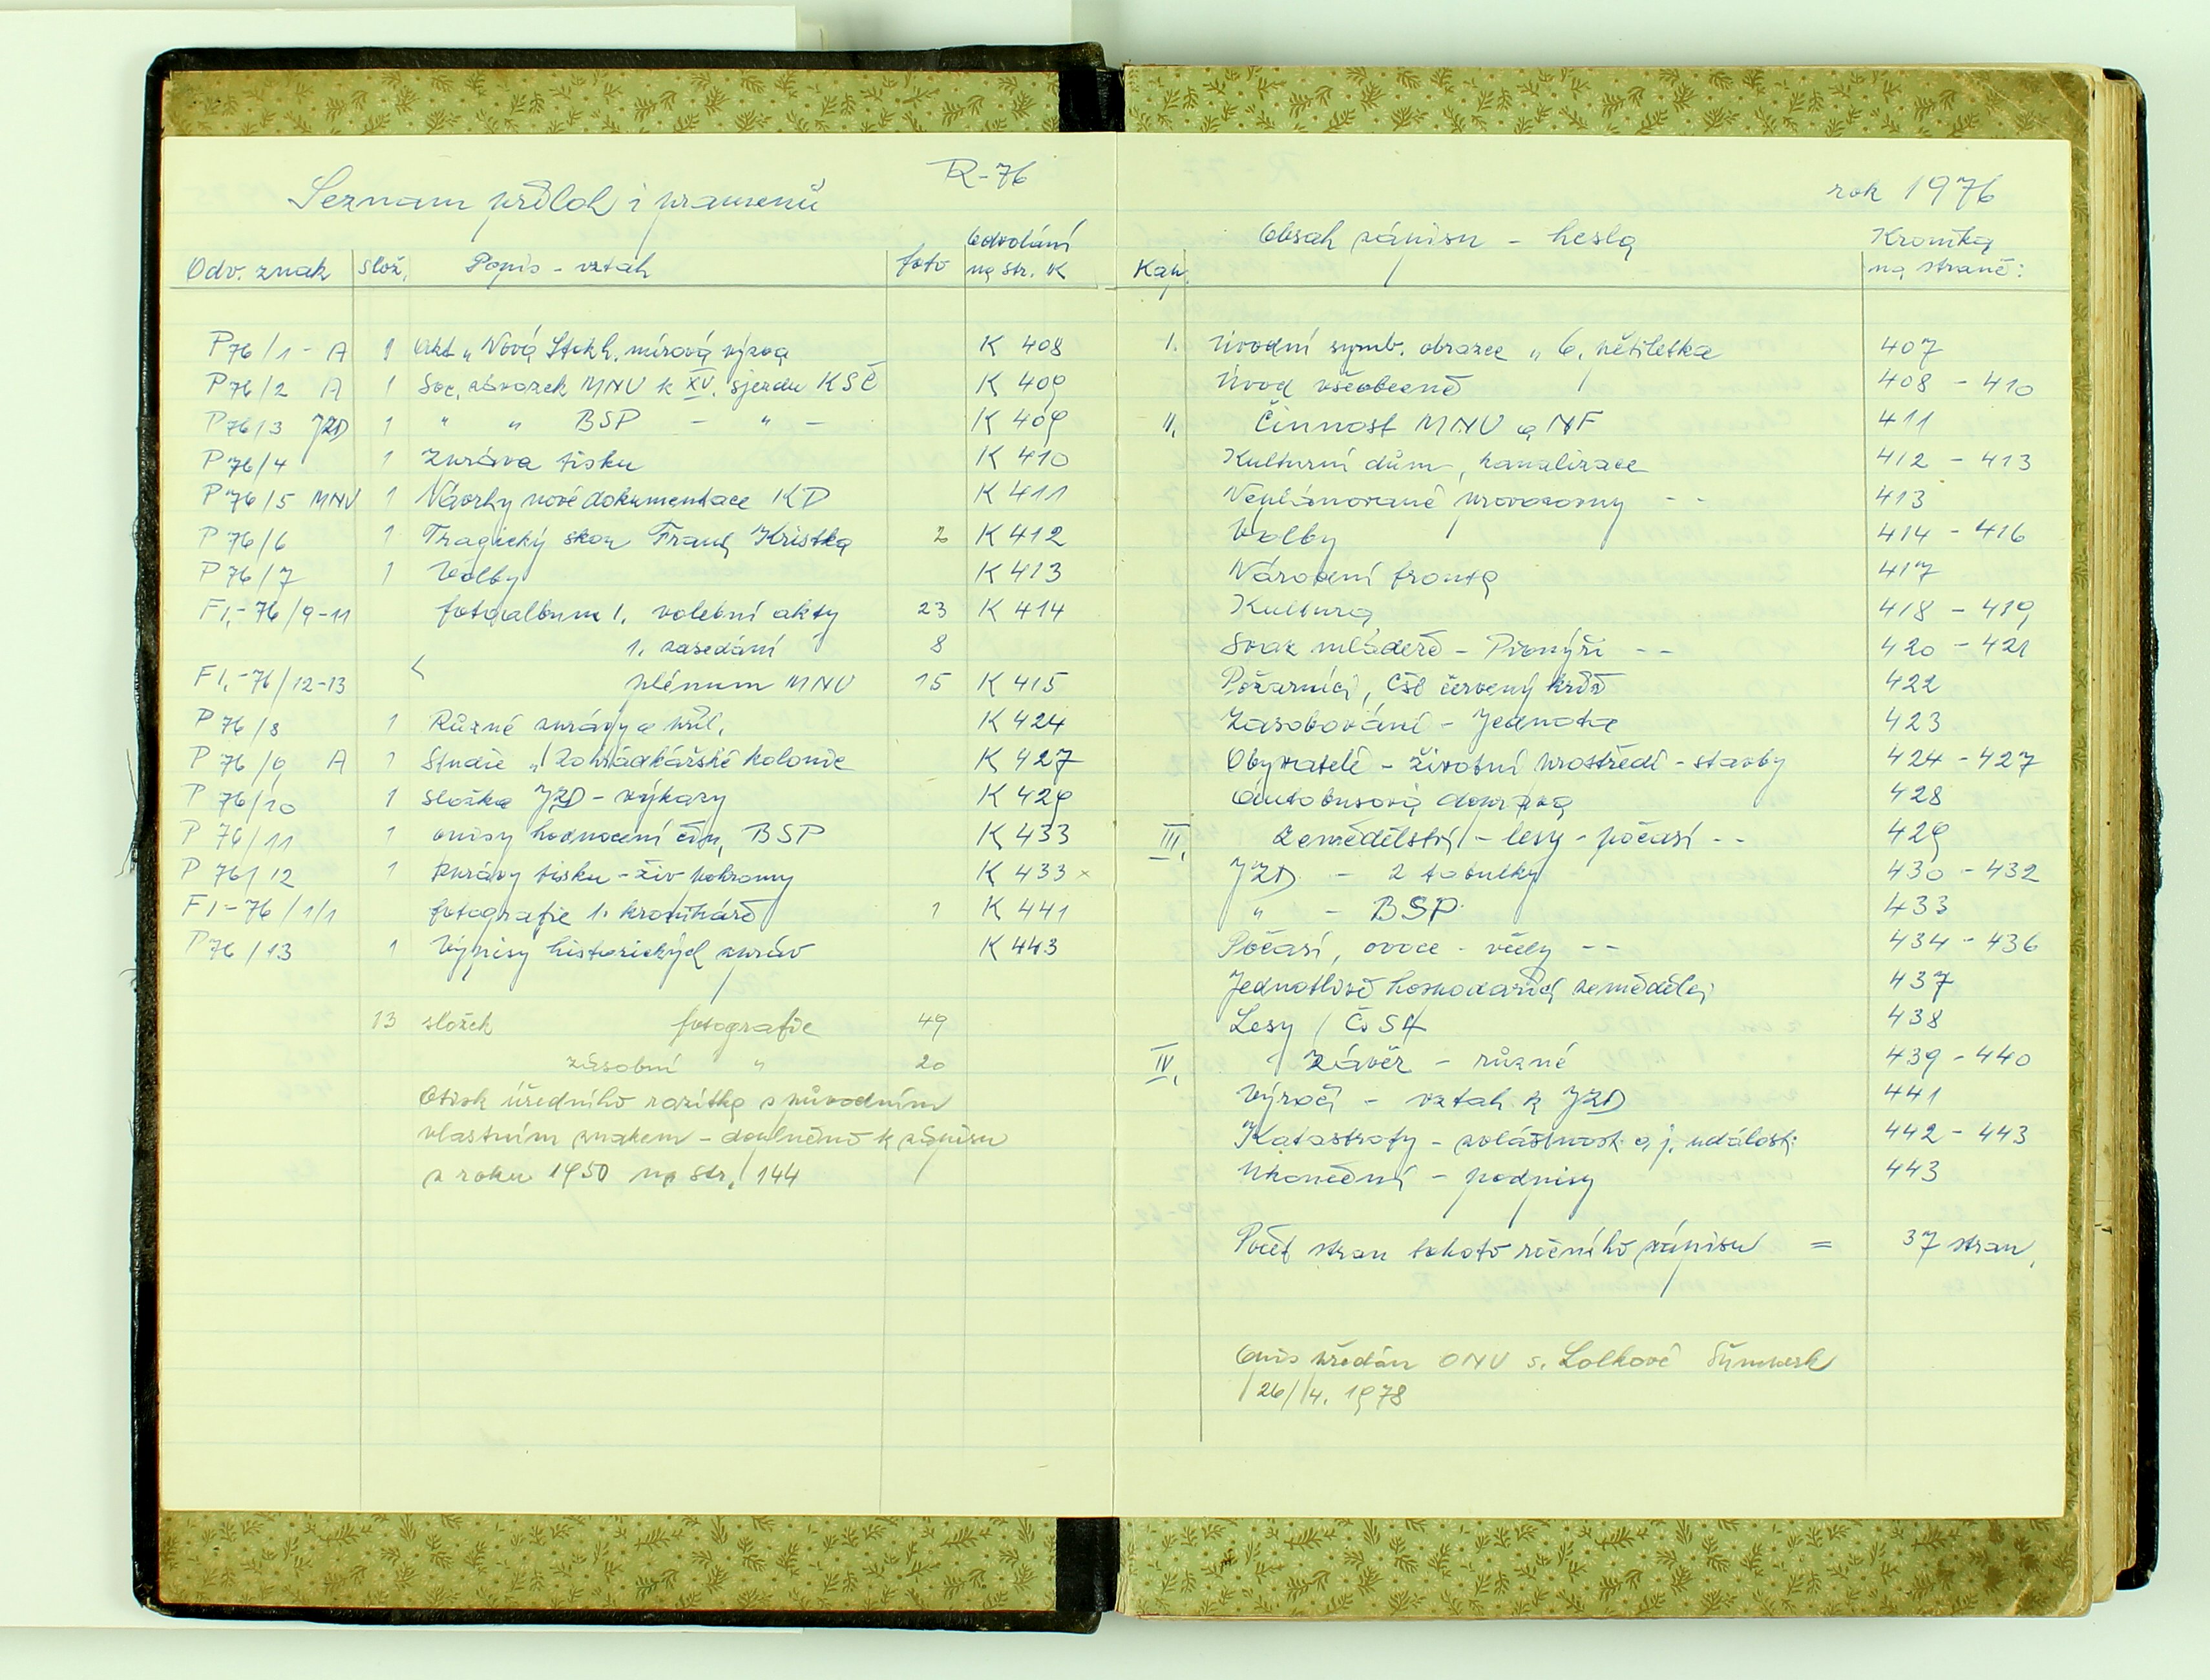 R-76
Seznam příloh i pramenů
Odv. znak slož. Popis - vztah foto Odvolání na str. K
P 76/1 - A 1 Akt „Nová Stokh. mírová výzva K 408
P 76/2 A 1 Soc. závazek MNV k XV. sjezdu KSČ K 409
P 76/3 JZD 1 " " BSP - " - K 409
P 76/4 1 Zpráva tisku K 410
P 76/5 MNV 1 Návrhy nové dokumentace KD K 411
P 76/6 1 Tragický skon Frant. Kristka 2 K 412
P 76/7 1 Volby K 413
F1.-76/9-11 fotoalbum 1. volební akty 23 K 414
1. zasedání 8
F1.-76/12-13 plénum MNV 15 K 415
P 76/8 1 Různé zprávy a příl. K 424
P 76/9 A 1 Studie „Zahrádkářské kolonie K 427
P 76/10 1 Složka JZD - výkazy K 429
P 76/11 1 opisy hodnocení čin. BSP K 433
P 76/12 1 Zprávy tisku - živ. pohromy K 433 x
F1-76/1/1 fotografie 1. kronikáře 1 K 441
P 76/13 1 Výpisy historických zpráv K 443
13 složek fotografie 49
zásobní " 20
Otisk úředního razítka s původním
vlastním znakem - doplněno k zápisu
z roku 1950 na str. 144
rok 1976
Kap. Obsah zápisu - hesla Kronika na straně:
I. Úvodní symb. obrazec „6. pětiletka 407
Úvod všeobecně 408 - 410
II. Činnost MNV a NF 411
Kulturní dům, kanalizace 412 - 413
Neplánované provozovny - - 413
Volby 414 - 416
Národní fronta 417
Kultura 418 - 419
Svaz mládeže - Pionýři - - 420 - 421
Požárníci, Čsl červený kříž 422
Zásobování - Jednota 423
Obyvatelé - životní prostředí - stavby 424 - 427
Autobusová doprava 428
III. Zemědělství - lesy - počasí - - 429
JZD - 2 tabulky 430 - 432
" - BSP 433
Počasí, ovoce - včely - - 434 - 436
Jednotlivě hospodařící zemědělci 437
Lesy / ČsSl 438
IV. Závěr - různé 439 - 440
Výročí - vztah k JZD 441
Katastrofy - zvláštnosti a j. události 442 - 443
Ukončení - podpisy 443
Počet stran tohoto ročního zápisu = 37 stran.
Opis předán ONV s. Lolkové Šumperk
26/4. 1978